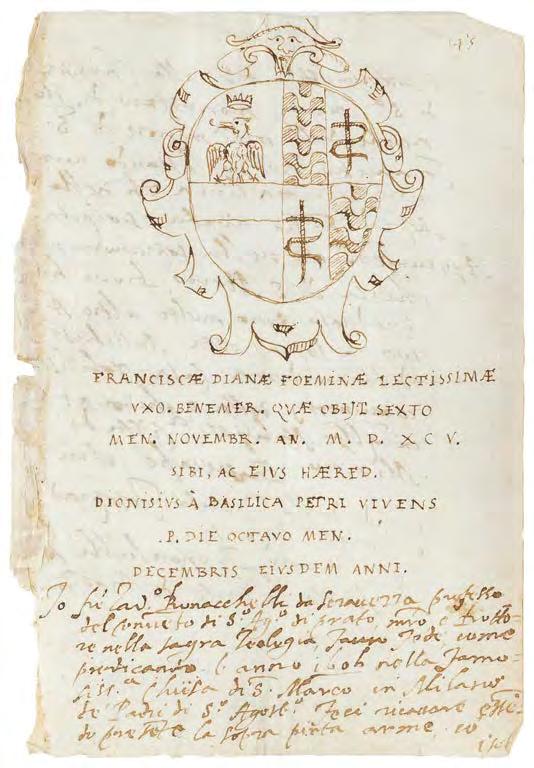 FRANCISCÆ DIANÆ FOEMINÆ LECTISSIMÆ
VXO. BENEMER. QVÆ OBIJT SEXTO
MEN. NOVEMBR. AN. M. D. XCV.
SIBI, AC EIVS HÆRED.
DIONISIVS À BASILICA PETRI VIVENS
.P. DIE OCTAVO MEN.
DECEMBRIS EIVSDEM ANNI.
Io fra Bonacchelli da Seravezza professo
del convēto di S.to Ag.o di prato, mro e Dotto=
re nella sagra Teologia, faccio fede come
predicando l'anno 1606 nella famo=
siss.a Chiesa di S. Marco in Milano
de Padri di S.to Agost.o feci ricavare essē=
do presēte la sopra picta arme. io